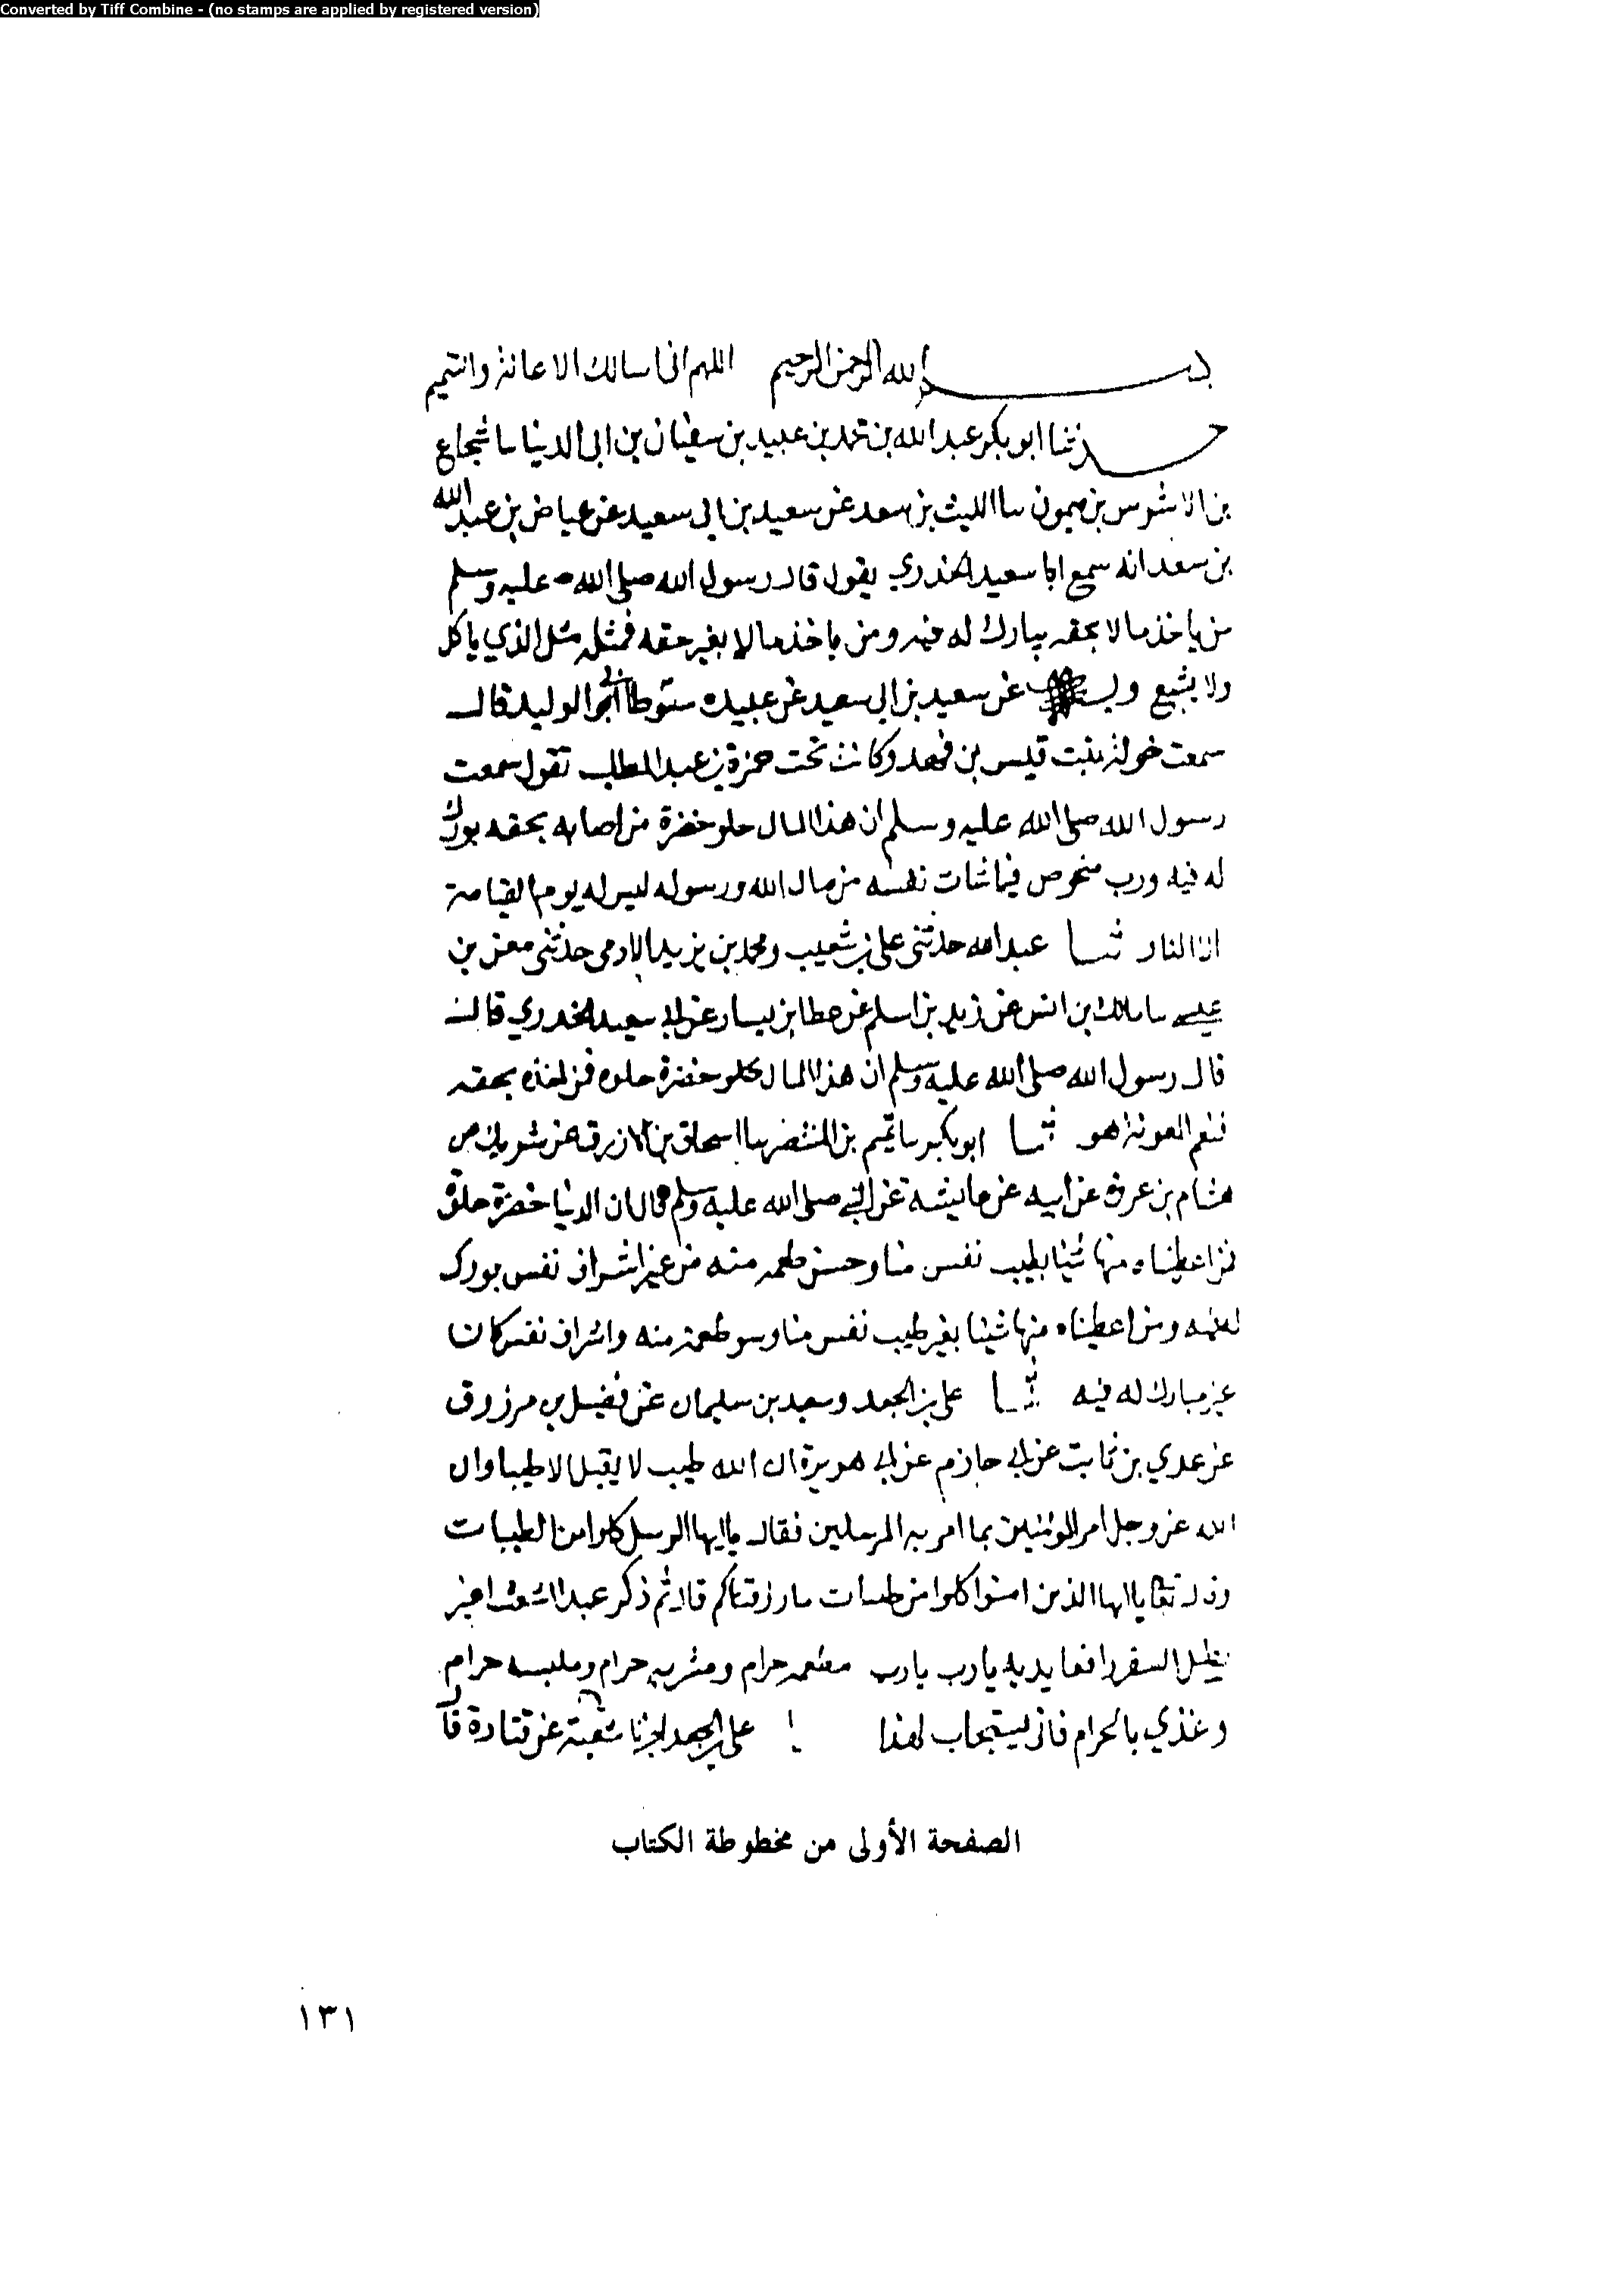 Converted by Tiff Combine - (no stamps are applied by registered version)
بسم الله الرحمن الرحيم اللهم انا سالك الاعانة والتتميم
حدثنا ابو بكر عبد الله بن محمد بن عبيد بن سفيان بن ابى الدنيا سا شجاع
بن الاشرس بن ميمون سا الليث بن سعد عن سعيد بن ابى سعيد عن عياض بن عبد الله
بن سعد انه سمع ابا سعيد الخدري يقول قال رسول الله صلى الله عليه وسلم
من ياخذ مالا بحقه يبارك له فيه ومن ياخذ مالا بغير حقه فمثله مثل الذي ياكل
ولا يشبع عن سعيد بن ابى سعيد عن عبيده سنوطا ابى الوليد قال
سمعت خولة بنت قيس بن فهد وكانت تحت حمزة بن عبد المطلب تقول سمعت
رسول الله صلى الله عليه وسلم ان هذا المال حلو خضرة من اصابه بحقه بورك
له فيه ورب متخوض فيما شات نفسه من مال الله ورسوله ليس له يوم القيامة
الا النار ثنا عبد الله حدثنى على بن شعيب ومحمد بن يزيد الادمى حدثنى معن بن
عيسى سا مالك بن انس عن زيد بن اسلم عن عطا بن يسار عن ابى سعيد الخدري قال
قال رسول الله صلى الله عليه وسلم ان هذا المال خضرة حلوه فمن اخذه بحقه
فنعم المعونة هو ثنا ابو بكر سا تميم بن المنتصر سا اسحاق بن الازرق عن شريك عن
هشام بن عروة عن ابيه عن عايشة عن النبى صلى الله عليه وسلم قال ان الدنيا خضرة حلوة
فمن اعطيناه منها شيا بطيب نفس منا وحسن طعمه منه من غير اشراف نفس بورك
له فيه ومن اعطيناه منها شيا بغير طيب نفس منا وسو طعمة منه واشراف نفس كان
غير مبارك له فيه ثنا على بن الجعد وسعيد بن سليمان عن فضيل بن مرزوق
عن عدي بن ثابت عن ابى حازم عن ابى هريرة ان الله طيب لا يقبل الا طيبا وان
الله عز وجل امر المومنين بما امر به المرسلين فقال يا ايها الرسل كلوا من الطيبات
وقال تعالى يا ايها الذين امنوا كلوا من طيبات ما رزقناكم قال ثم ذكر عبدا اشعث اغبر
يطيل السفر رافعا يديه يا رب يا رب مطعمه حرام ومشربه حرام وملبسه حرام
وغذي بالحرام فانى يستجاب لهذا على بن الجعد اخبرنا شعبة عن قتادة قال
الصفحة الأولى من مخطوطة الكتاب
١٣١